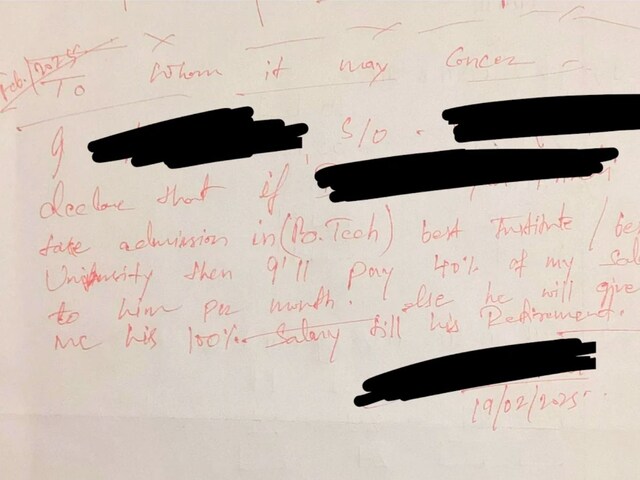 Feb. / 2025
To Whom it may Concer
I S/O
declare that if
take admission in (B.Tech) best Institute /
University then I'll pay 40% of my
to him per month. else he will give
me his 100% Salary till his Retirement.
19/02/2025